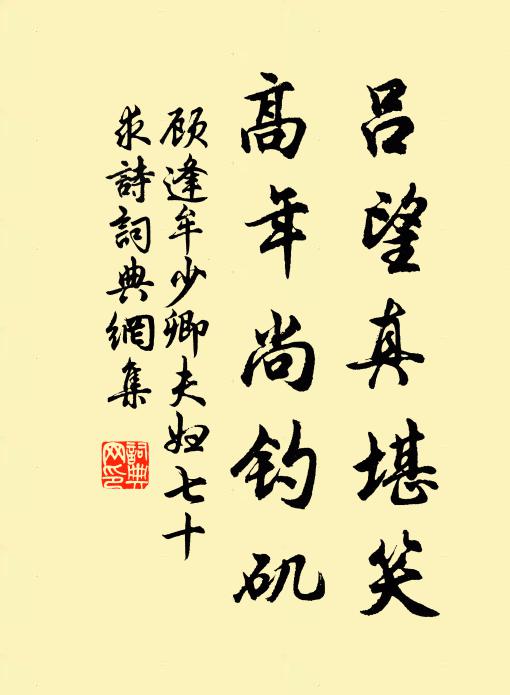 吕望真堪笑
高年尚钓矶
顾逢牟少卿夫妇七十
求詩詞典網集
詞典
网印